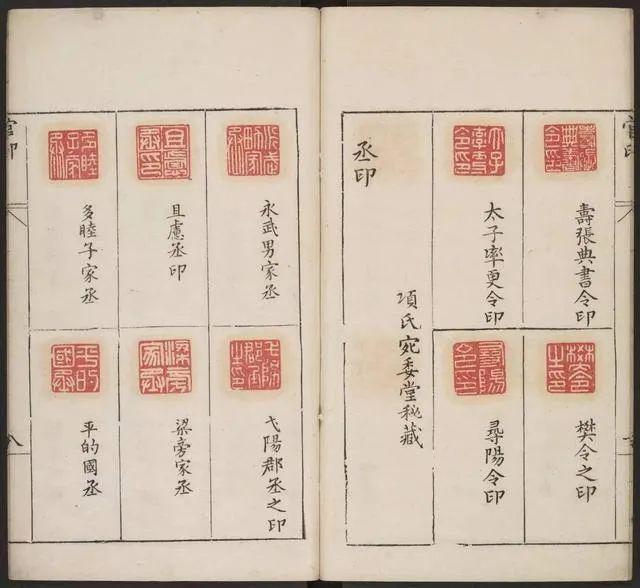 壽張典書令印
樊令之印
太子率更令印
尋陽令印
丞印
項氏宛委堂秘藏
永武男家丞
弋陽郡丞之印
且慮丞印
梁旁家丞
多睦子家丞
平的國丞
官印
八